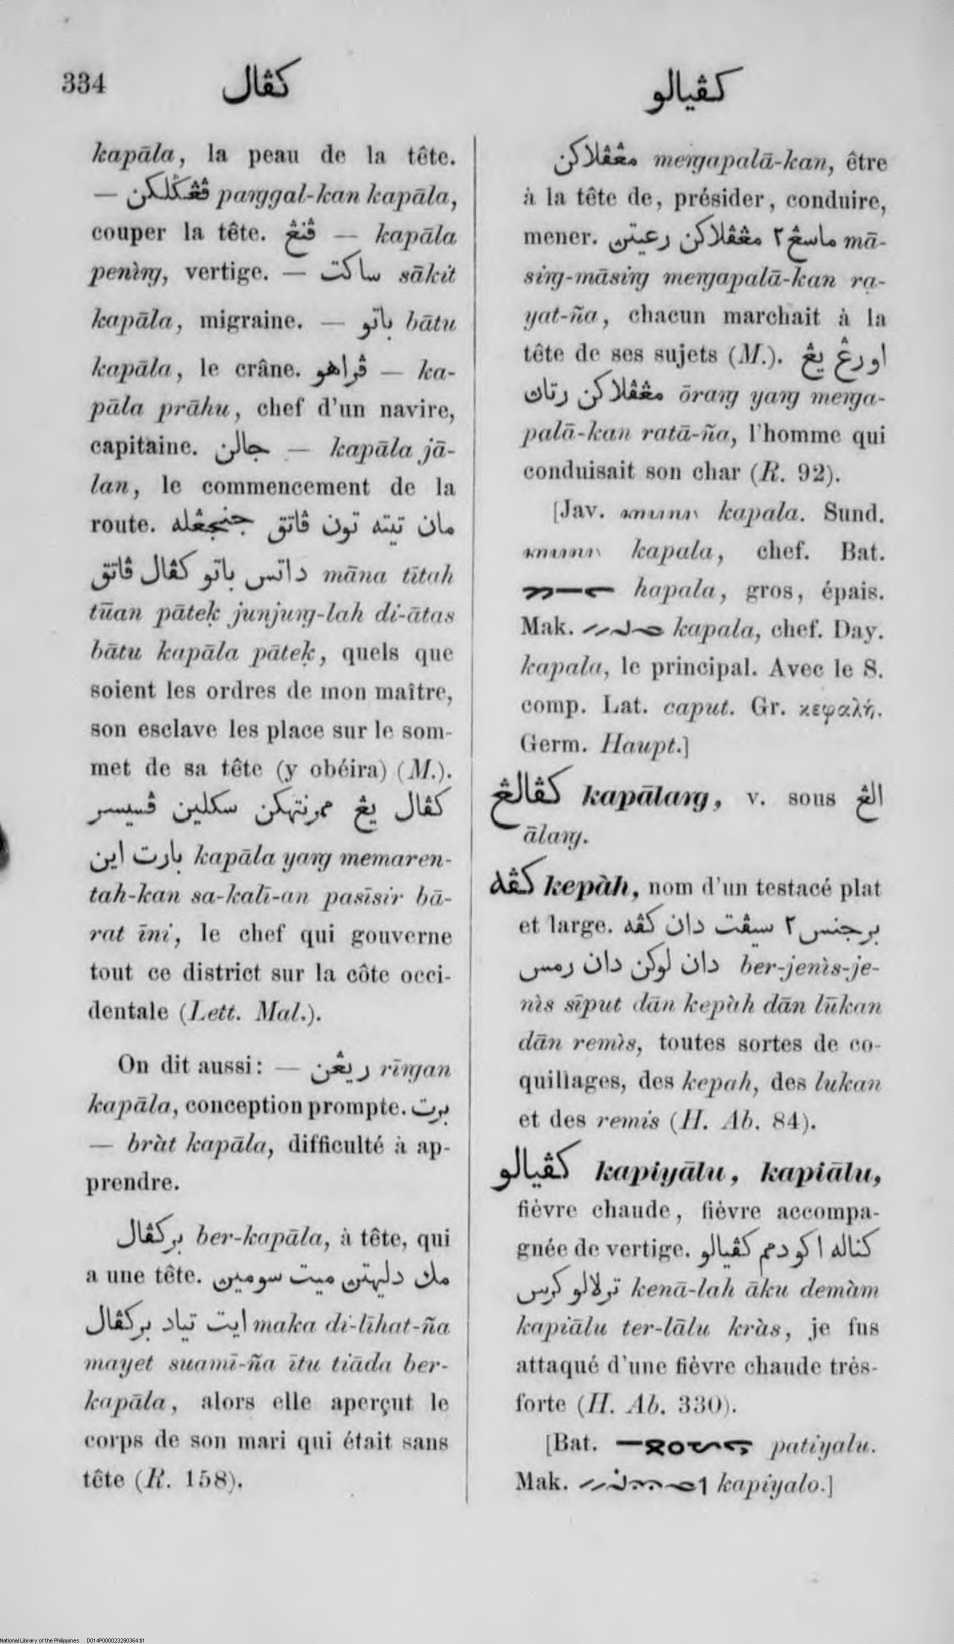 334
كڤال
كڤيالو
kapāla, la peau de la tête.
— ڤڠݢلكن paṅggal-kan kapāla,
couper la tête. ڤنڠ — kapāla
penìṅg, vertige. — ساكت sākit
kapāla, migraine. — باتو bātu
kapāla, le crâne. ڤراهو — ka-
pāla prāhu, chef d'un navire,
capitaine. جالن — kapāla jā-
lan, le commencement de la
route. مان تيته تون ڤاتق جنجڠله
داتس باتو كڤال ڤاتق māna tītah
tūan pātek junjuṅg-lah di-ātas
bātu kapāla pātek, quels que
soient les ordres de mon maître,
son esclave les place sur le som-
met de sa tête (y obéira) (M.).
كڤال يڠ ممرنتهكن سكلين ڤسيسر
بارت اين kapāla yaṅg memaren-
tah-kan sa-kalī-an pasīsir bā-
rat īni, le chef qui gouverne
tout ce district sur la côte occi-
dentale (Lett. Mal.).
On dit aussi: — ريڠن rīṅgan
kapāla, conception prompte. برت
— bràt kapāla, difficulté à ap-
prendre.
بركڤال ber-kapāla, à tête, qui
a une tête. مك دليهتن ميت سومين
ايت تياد بركڤال maka di-līhat-ña
mayet suamī-ña ītu tiāda ber-
kapāla, alors elle aperçut le
corps de son mari qui était sans
tête (R. 158).
مڠڤلاكن meṅgapalā-kan, être
à la tête de, présider, conduire,
mener. ماسڠ٢ مڠڤلاكن رعيتن mā-
siṅg-māsiṅg meṅgapalā-kan ra-
yat-ña, chacun marchait à la
tête de ses sujets (M.). اورڠ يڠ
مڠڤلاكن رتاڽ ōraṅg yaṅg meṅga-
palā-kan ratā-ña, l'homme qui
conduisait son char (R. 92).
[Jav. kapala. Sund.
kapala, chef. Bat.
hapala, gros, épais.
Mak. kapala, chef. Day.
kapala, le principal. Avec le S.
comp. Lat. caput. Gr. κεφαλή.
Germ. Haupt.]
كڤالڠ kapālaṅg, v. sous الڠ
ālaṅg.
كڤه kepàh, nom d'un testacé plat
et large. برجنس٢ سيڤت دان كڤه
دان لوكن دان رمس ber-jenìs-je-
nìs sīput dān kepàh dān lūkan
dān remìs, toutes sortes de co-
quillages, des kepah, des lukan
et des remis (H. Ab. 84).
كڤيالو kapiyālu, kapiālu,
fièvre chaude, fièvre accompa-
gnée de vertige. كناله اكو دمم كڤيالو
ترلالو كرس kenā-lah āku demàm
kapiālu ter-lālu kràs, je fus
attaqué d'une fièvre chaude très-
forte (H. Ab. 330).
[Bat. patiyalu.
Mak. kapiyalo.]
National Library of the Philippines